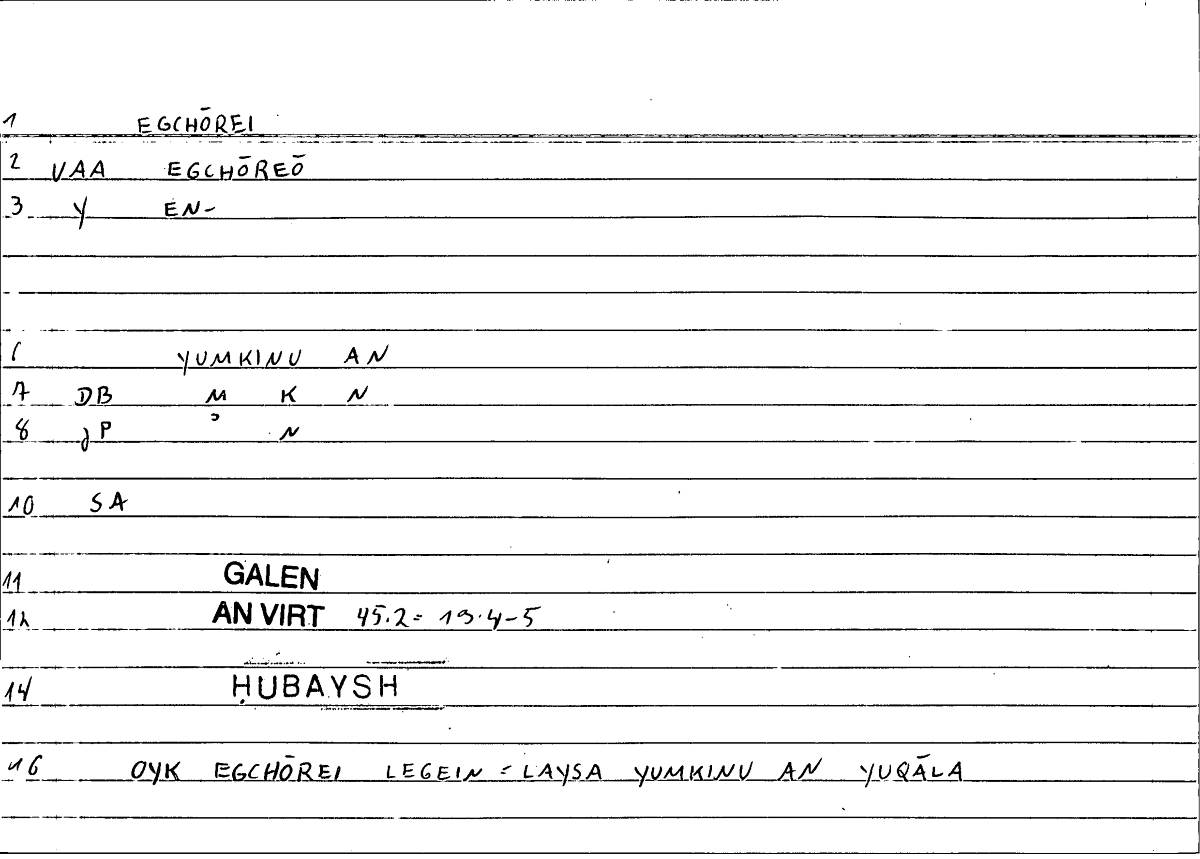 1 EGCHŌREI
2 VAA EGCHŌREŌ
3 Y EN-
6 YUMKINU AN
7 DB M K N
8 JP N
10 SA
11 GALEN
12 AN VIRT 45.2 = 19.4-5
14 ḤUBAYSH
16 OYK EGCHŌREI LEGEIN = LAYSA YUMKINU AN YUQĀLA